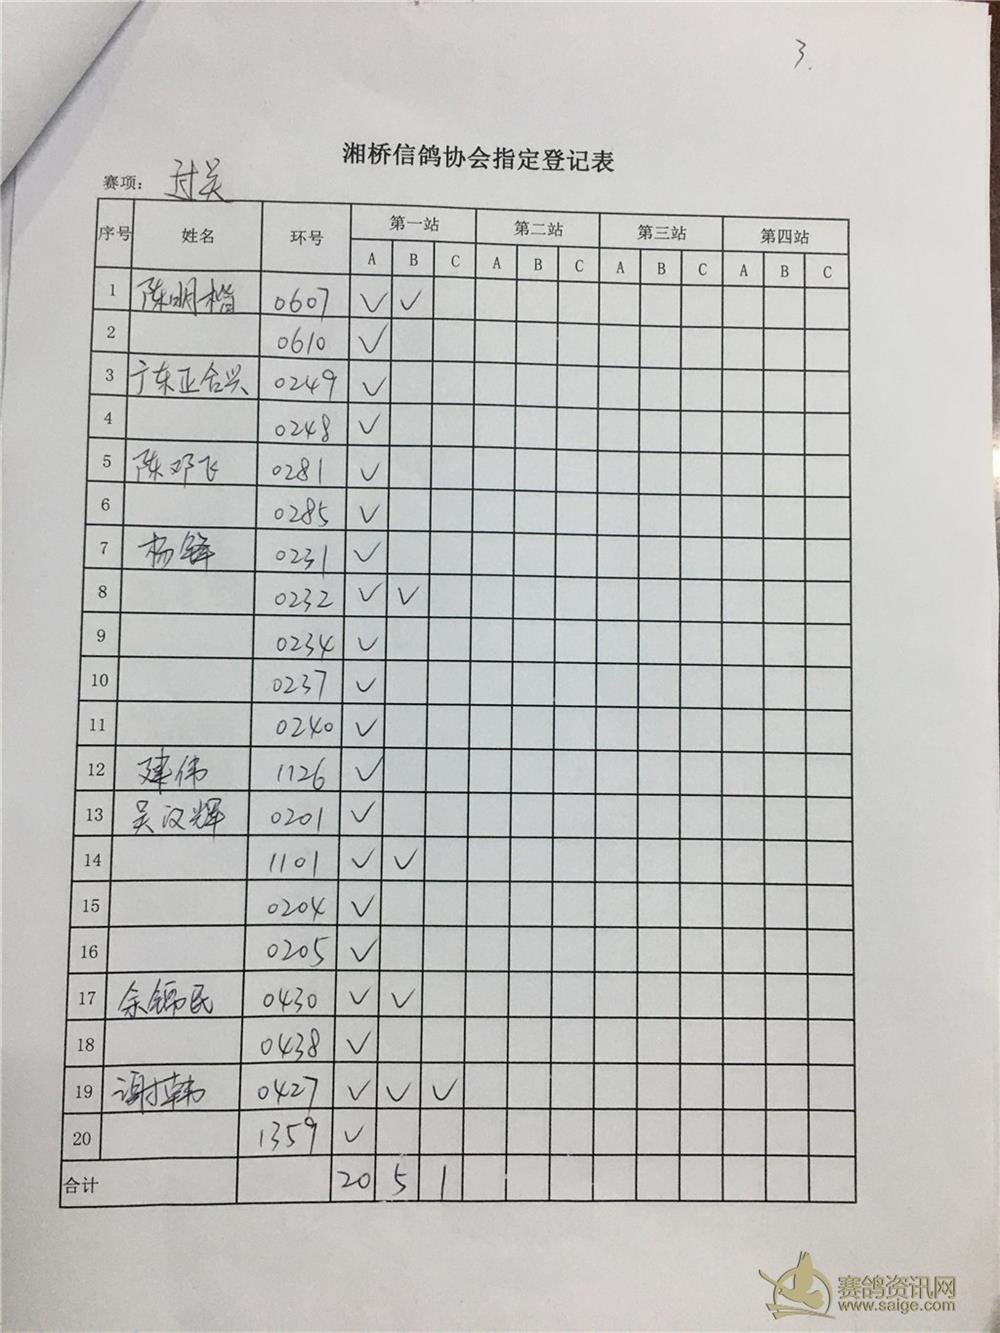 3.
湘桥信鸽协会指定登记表
赛项： 过关
序号 姓名 环号 第一站 第二站 第三站 第四站
A B C A B C A B C A B C
1 陈明楷 0607 ✓ ✓
2 0610 ✓
3 广东正合兴 0249 ✓
4 0248 ✓
5 陈邓飞 0281 ✓
6 0285 ✓
7 杨锋 0231 ✓
8 0232 ✓ ✓
9 0234 ✓
10 0237 ✓
11 0240 ✓
12 建伟 1126 ✓
13 吴汉辉 0201 ✓
14 1101 ✓ ✓
15 0204 ✓
16 0205 ✓
17 余锦民 0430 ✓ ✓
18 0438 ✓
19 谢韩 0427 ✓ ✓ ✓
20 1359 ✓
合计 20 5 1
赛鸽资讯网
www.saige.com